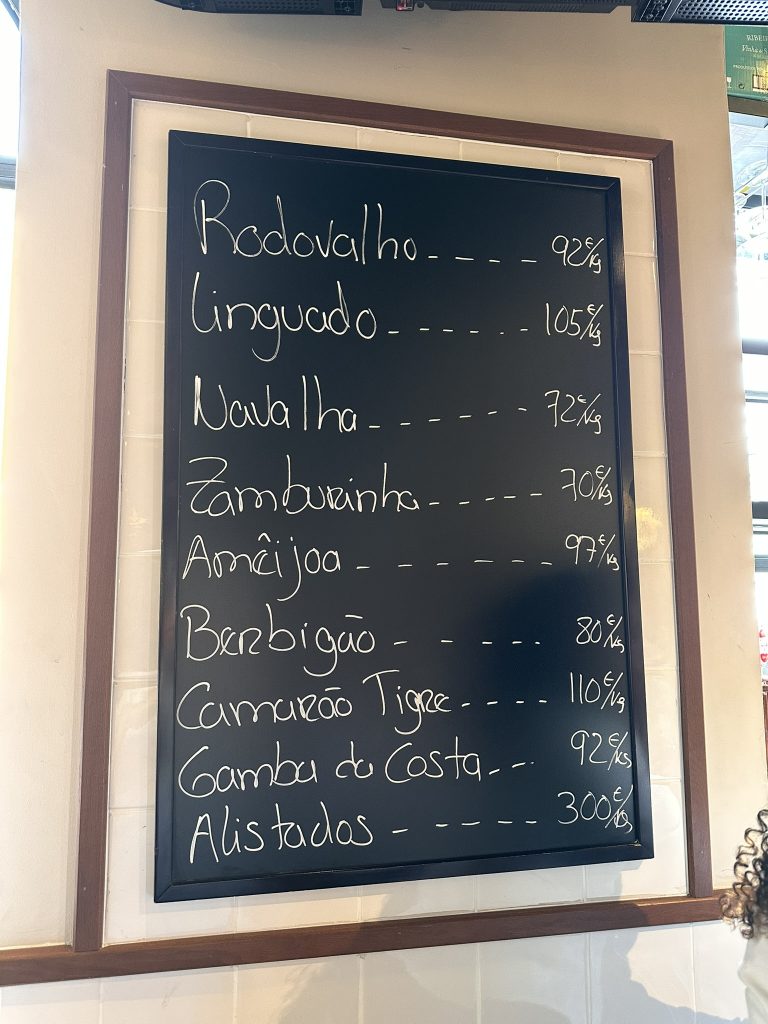 Rodovalho - - - - 92€/kg
Linguado - - - - - - 105€/kg
Navalha - - - - - - 72€/kg
Zamburinha - - - - - 70€/kg
Amêijoa - - - - - - - 97€/kg
Berbigão - - - - - 80€/kg
Camarão Tigre - - - - 110€/kg
Gamba da Costa - - - 92€/kg
Alistados - - - - - - 300€/kg